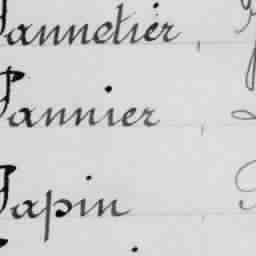 Pannetier,
Pannier,
Papin